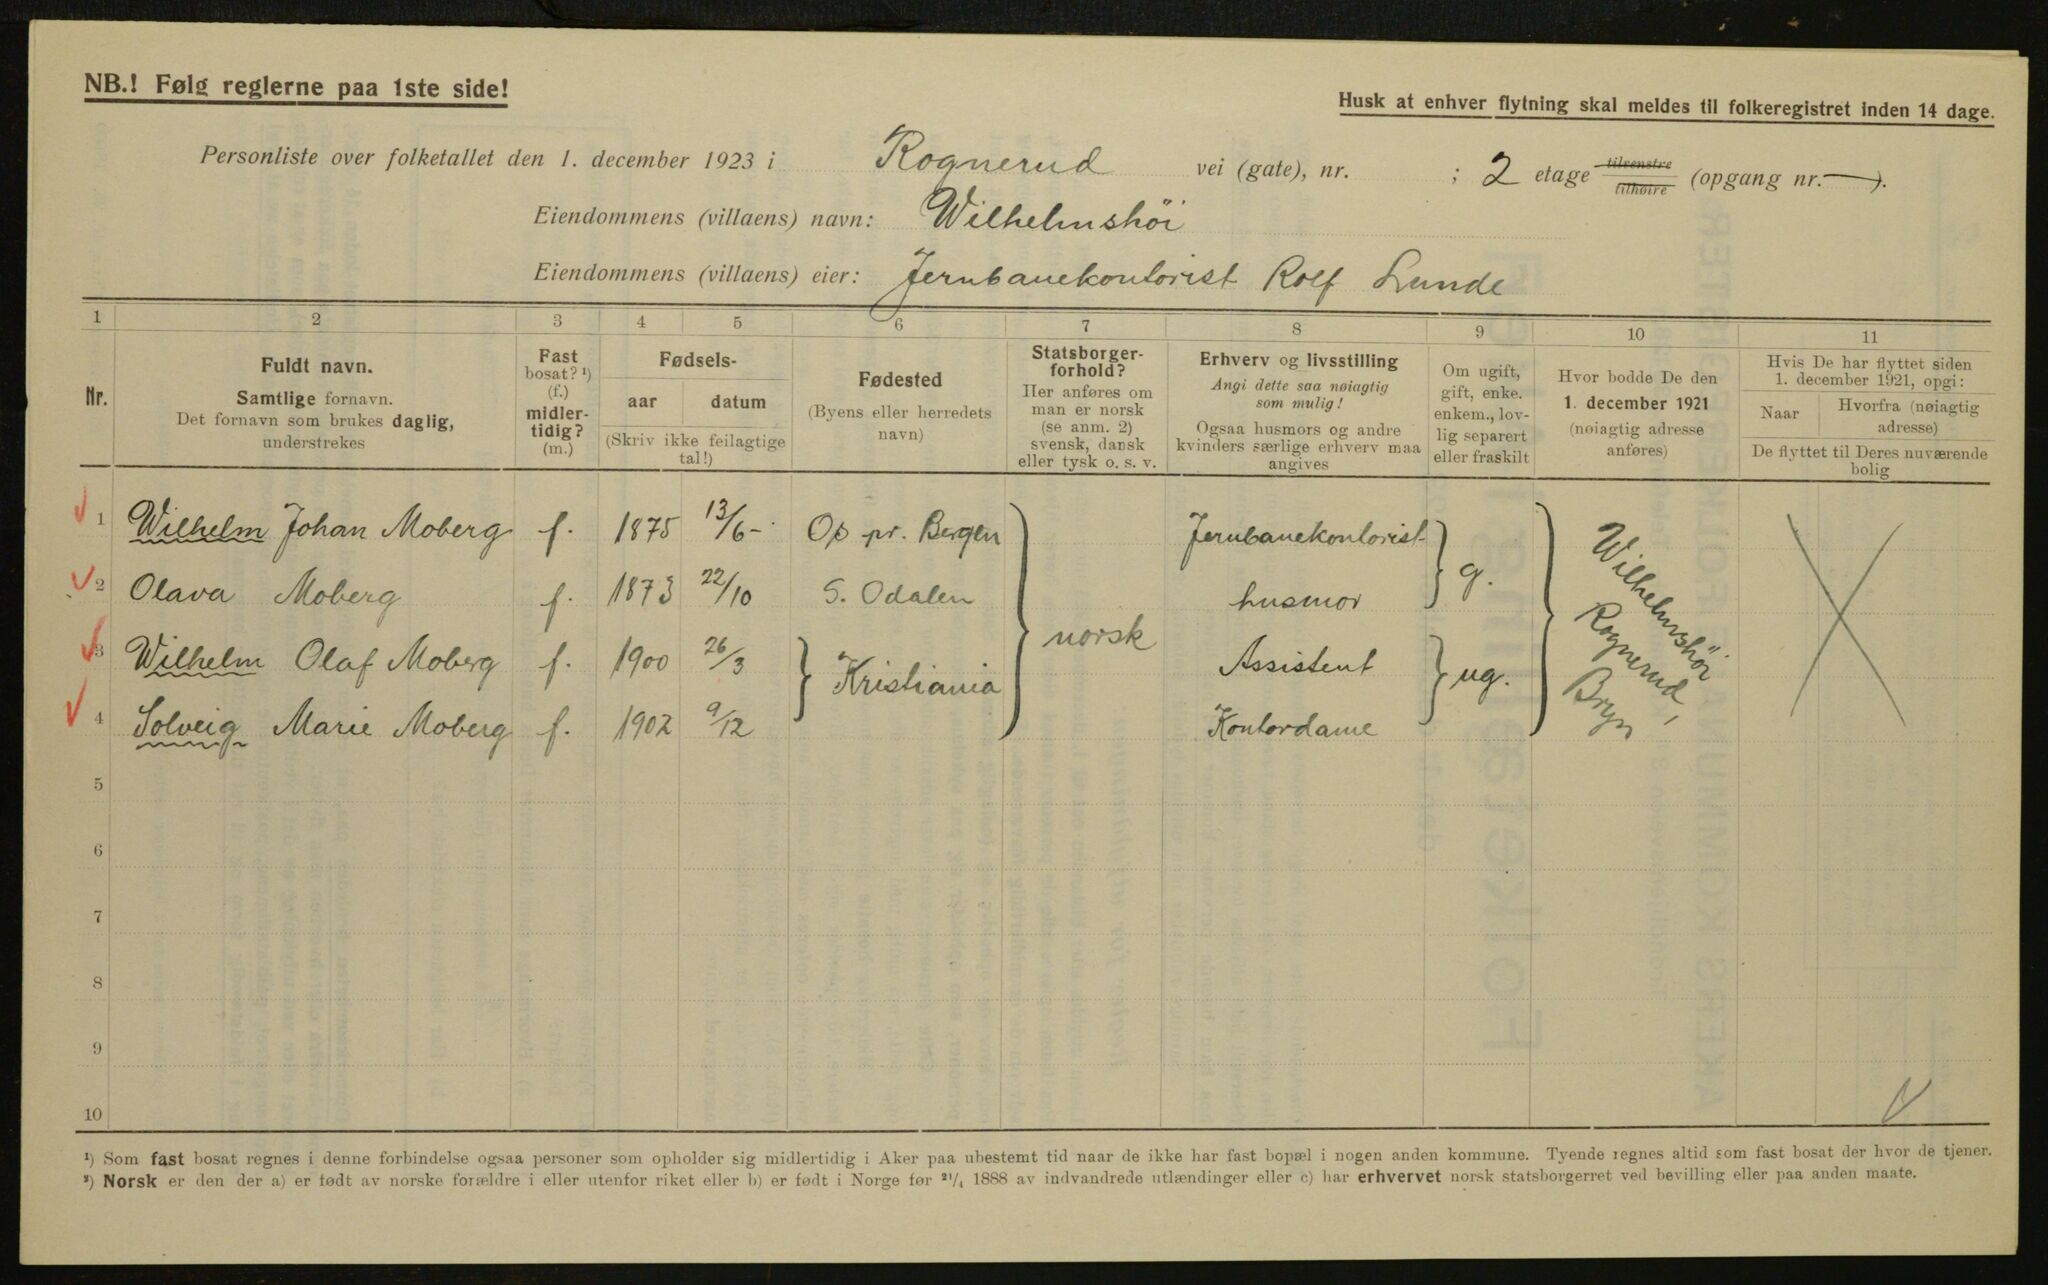 NB.! Følg reglerne paa 1ste side!
Husk at enhver flytning skal meldes til folkeregistret inden 14 dage.
Personliste over folketallet den 1. december 1923 i Rognerud vei (gate), nr. ; 2 etage tilvenstre tilhøire (opgang nr. —).
Eiendommens (villaens) navn: Wilhelmshöi
Eiendommens (villaens) eier: Jernbanekontorist Rolf Lunde
1 2 3 4 5 6 7 8 9 10 11
Nr.
Fuldt navn.
Samtlige fornavn.
Det fornavn som brukes daglig,
understrekes
Fast
bosat? ¹)
(f.)
midler-
tidig?
(m.)
Fødsels-
aar datum
(Skriv ikke feilagtige
tal!)
Fødested
(Byens eller herredets
navn)
Statsborger-
forhold?
Her anføres om
man er norsk
(se anm. 2)
svensk, dansk
eller tysk o. s. v.
Erhverv og livsstilling
Angi dette saa nøiagtig
som mulig!
Ogsaa husmors og andre
kvinders særlige erhverv maa
angives
Om ugift,
gift, enke.
enkem., lov-
lig separert
eller fraskilt
Hvor bodde De den
1. december 1921
(nøiagtig adresse
anføres)
Hvis De har flyttet siden
1. december 1921, opgi:
Naar Hvorfra (nøiagtig
adresse)
De flyttet til Deres nuværende
bolig
1 Wilhelm Johan Moberg f. 1875 13/6 - Os pr. Bergen Jernbanekontorist
2 Olava Moberg f. 1873 22/10 S. Odalen husmor g.
norsk
3 Wilhelm Olaf Moberg f. 1900 26/3 Assistent
Kristiania ug.
4 Solveig Marie Moberg f. 1902 9/12 Kontordame
Wilhelmshöi
Rognerud,
Bryn
5
6
7
8
9
10
¹) Som fast bosat regnes i denne forbindelse ogsaa personer som opholder sig midlertidig i Aker paa ubestemt tid naar de ikke har fast bopæl i nogen anden kommune. Tyende regnes altid som fast bosat der hvor de tjener.
²) Norsk er den der a) er født av norske forældre i eller utenfor riket eller b) er født i Norge før ²¹/₄ 1888 av indvandrede utlændinger eller c) har erhvervet norsk statsborgerret ved bevilling eller paa anden maate.